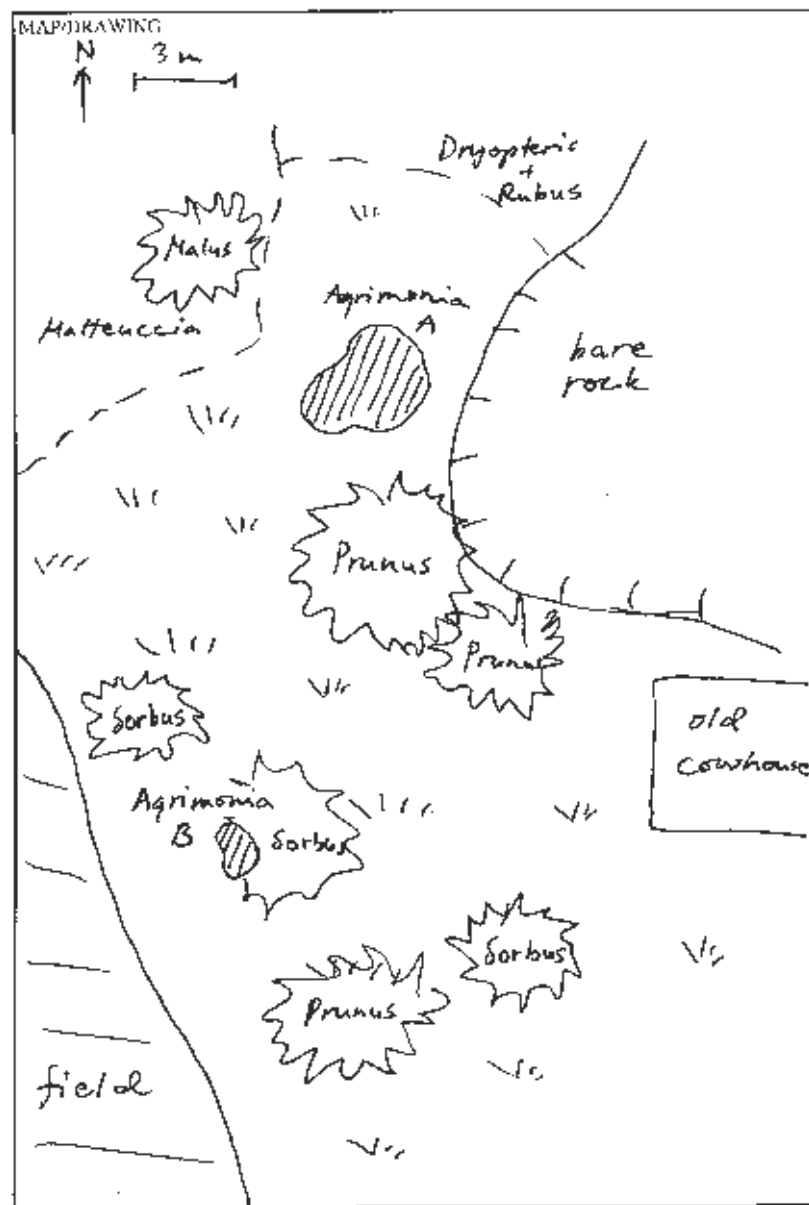 MAP/DRAWING
N
3 m
Dryopteris
+
Rubus
Malus
Agrimonia
A
Matteuccia
bare
rock
Prunus
Prunus
Sorbus
old
Cowhouse
Agrimonia
B
Sorbus
Sorbus
Prunus
field